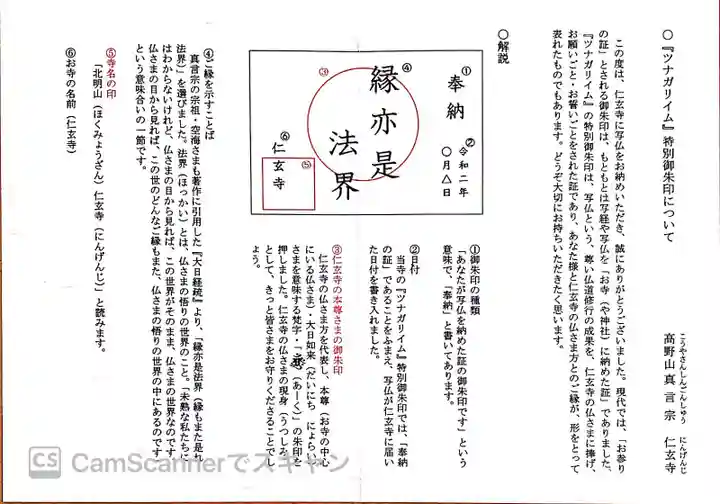 ○『ツナガリイム』特別御朱印について
高野山真言宗 仁玄寺
こうやさんしんごんしゅう にんげんじ
この度は、仁玄寺に写仏をお納めいただき、誠にありがとうございました。現代では、「お参り
の証」とされる御朱印は、もともとは写経や写仏を「お寺(や神社)に納めた証」でありました。
『ツナガリイム』の特別御朱印は、写仏という、尊い仏道修行の成果を、仁玄寺の仏さまに捧げ、
お願いごと・お誓いごとをされた証であり、あなた様と仁玄寺の仏さま方とのご縁が、形をとって
表れたものでもあります。どうぞ大切にお持ちいただきたく思います。
○解説
①
奉納
②
令和二年
○月△日
③
④
縁亦是
法界
⑤
⑥
仁玄寺
①御朱印の種類
「あなたが写仏を納めた証の御朱印です」という
意味で、「奉納」と書いてあります。
②日付
当寺の『ツナガリイム』特別御朱印では、「奉納
の証」であることをふまえ、写仏が仁玄寺に届い
た日付を書き入れました。
③仁玄寺の本尊さまの御朱印
仁玄寺の仏さま方を代表し、本尊(お寺の中心
にいる仏さま)・大日如来(だいにち にょらい)
さまを意味する梵字・「
」(あーく)」の朱印を
押しました。仁玄寺の仏さまの現身(うつしみ)
として、きっと皆さまをお守りくださることでし
ょう。
④ご縁を示すことば
真言宗の宗祖・空海さまも著作に引用した『大日経疏』より、「縁亦是法界(縁もまた是れ
法界)」を選びました。法界(ほっかい)とは、仏さまの悟りの世界のこと。「未熟な私たちに
はわからないけれど、仏さまの目から見れば、この世界がそのまま、仏さまの世界なのです
仏さまの目から見れば、この世のどんなご縁もまた、仏さまの悟りの世界の中にあるのです
という意味合いの一節です。
⑤寺名の印
「北明山(ほくみょうざん)仁玄寺(にんげんじ)」と読みます。
⑥お寺の名前(仁玄寺)
CS CamScannerでスキャン